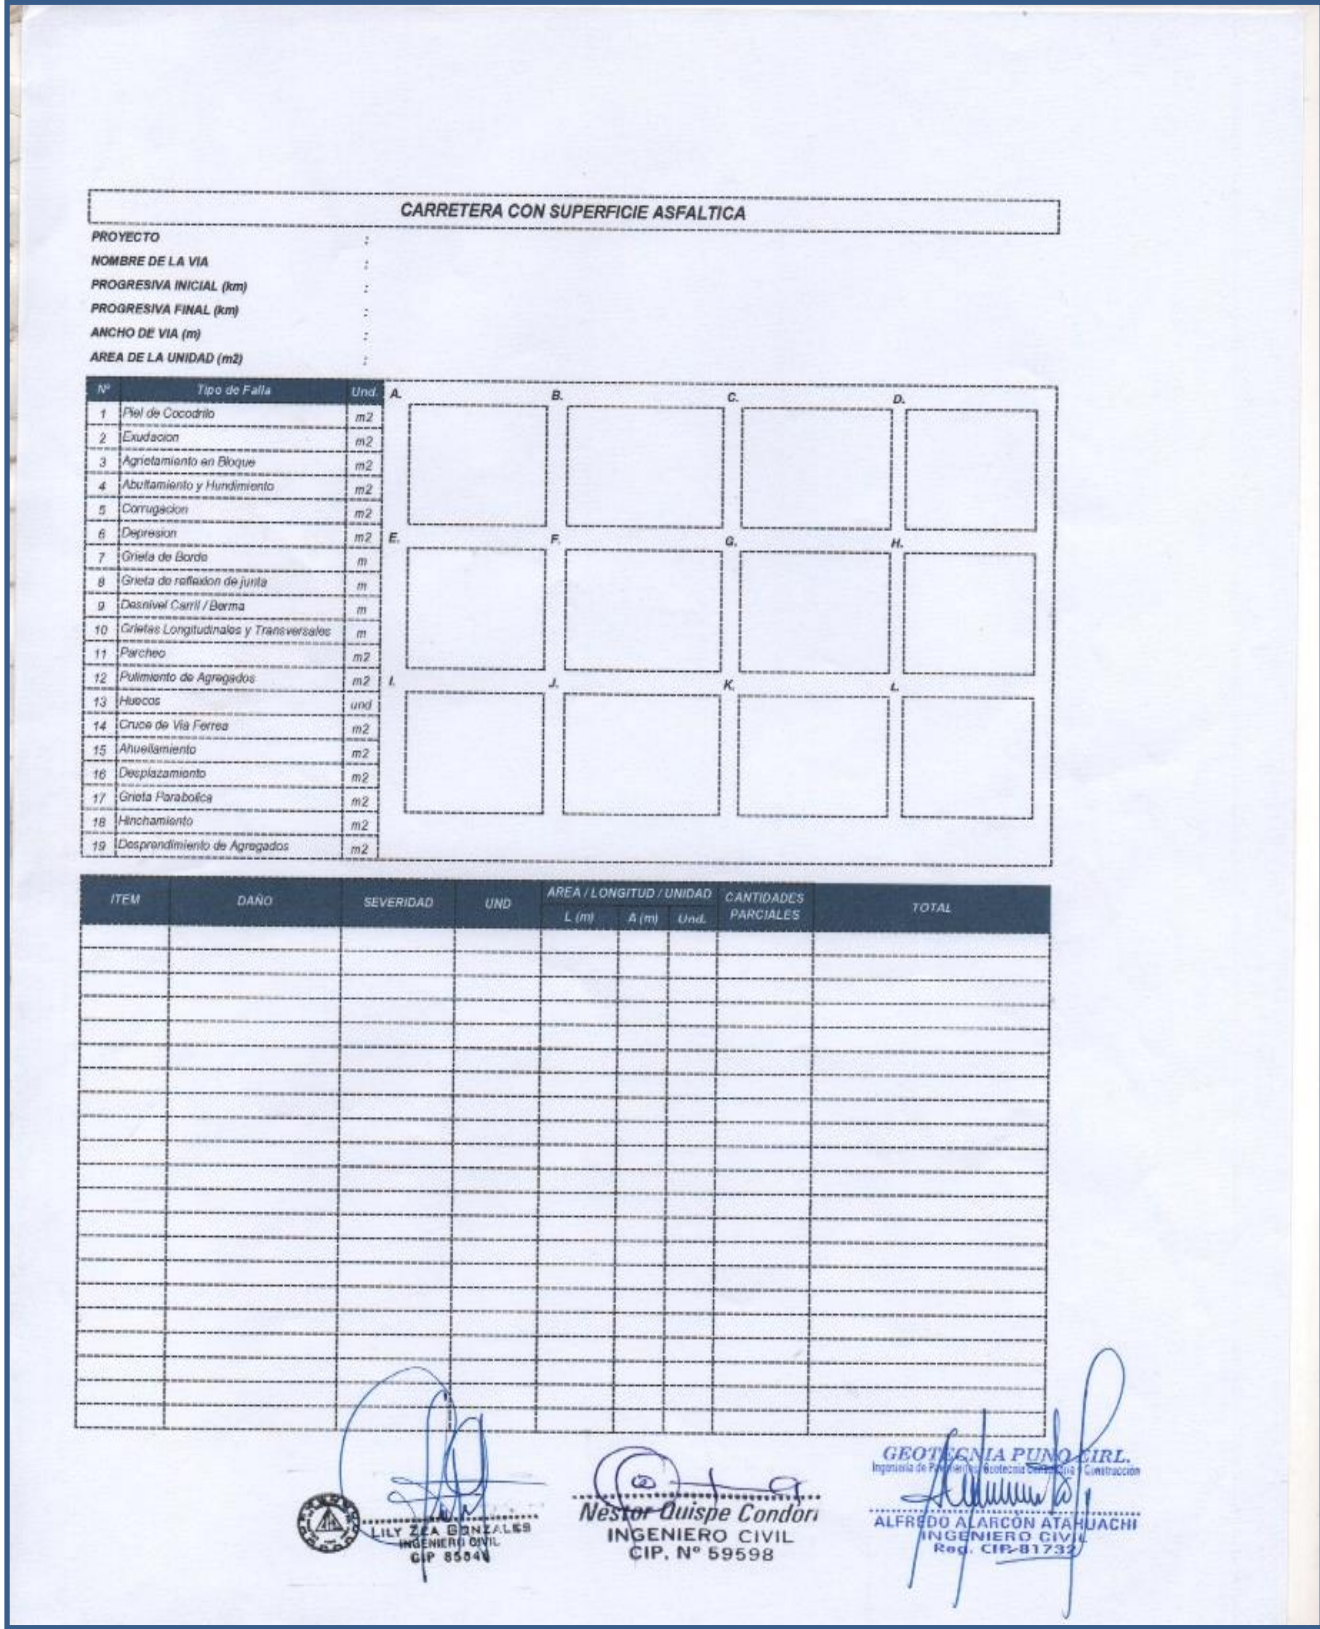 CARRETERA CON SUPERFICIE ASFALTICA
PROYECTO :
NOMBRE DE LA VIA :
PROGRESIVA INICIAL (km) :
PROGRESIVA FINAL (km) :
ANCHO DE VIA (m) :
AREA DE LA UNIDAD (m2) :
Nº Tipo de Falla Und.
1 Piel de Cocodrilo m2
2 Exudacion m2
3 Agrietamiento en Bloque m2
4 Abultamiento y Hundimiento m2
5 Corrugacion m2
6 Depresion m2
7 Grieta de Borde m
8 Grieta de reflexion de junta m
9 Desnivel Carril / Berma m
10 Grietas Longitudinales y Transversales m
11 Parcheo m2
12 Pulimiento de Agregados m2
13 Huecos und
14 Cruce de Via Ferrea m2
15 Ahuellamiento m2
16 Desplazamiento m2
17 Grieta Parabolica m2
18 Hinchamiento m2
19 Desprendimiento de Agregados m2
A. B. C. D.
E. F. G. H.
I. J. K. L.
ITEM DAÑO SEVERIDAD UND AREA / LONGITUD / UNIDAD CANTIDADES PARCIALES TOTAL
L (m) A (m) Und.
LILY ZEA GONZALES
INGENIERO CIVIL
CIP
Néstor Quispe Condori
INGENIERO CIVIL
CIP. Nº 59598
GEOTECNIA PUNO EIRL.
Ingeniería de Pavimentos, Geotecnia Construcción
ALFREDO ALARCÓN ATAHUACHI
INGENIERO CIVIL
Reg. CIP-81732